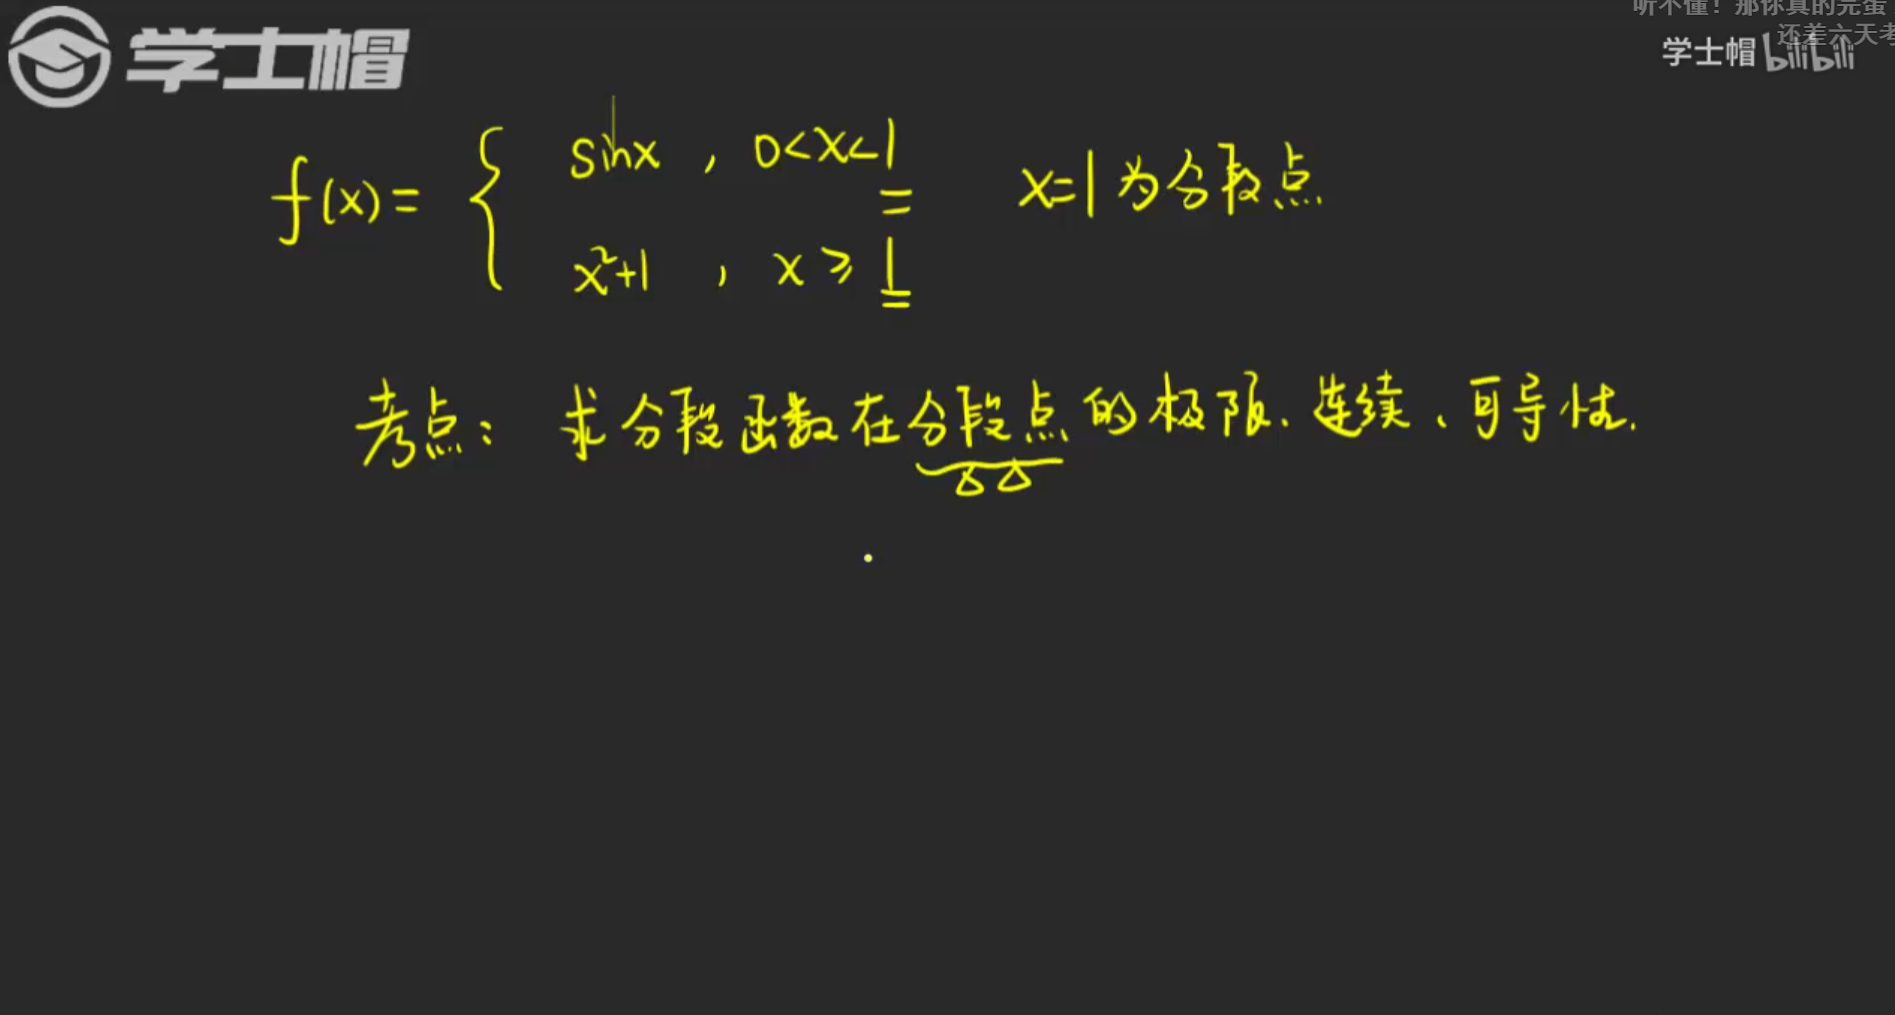 听不懂！那你真的完蛋
还差六天考
学士帽
学士帽 bilibili
f(x) = { sinx , 0<x<1
x²+1 , x ≥ 1
x=1为分段点.
考点： 求分段函数在分段点的极限、连续、可导性.